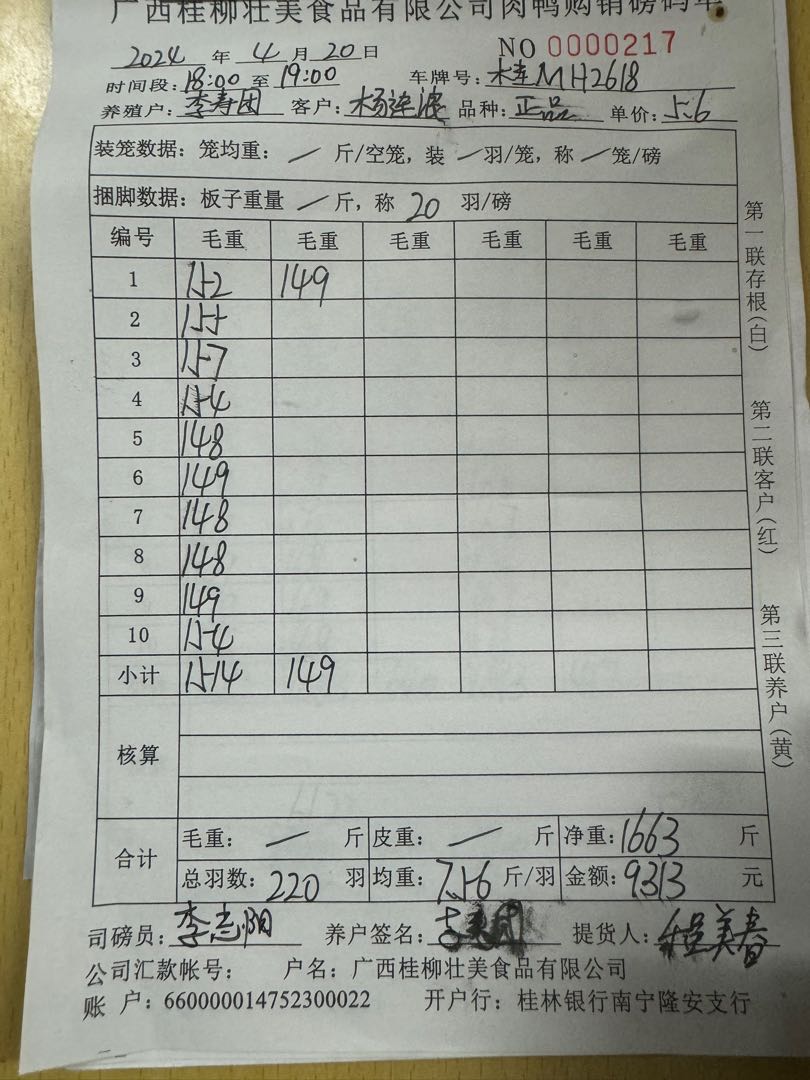 广西桂柳壮美食品有限公司肉鸭购销磅码单
2024 年 4 月 20 日 NO 0000217
时间段: 18:00 至 19:00 车牌号: 桂MH2618
养殖户: 李寿团 客户: 杨连波 品种: 正品 单价: 5.6
装笼数据: 笼均重: / 斤/空笼, 装 / 羽/笼, 称 / 笼/磅
捆脚数据: 板子重量 / 斤, 称 20 羽/磅
编号 毛重 毛重 毛重 毛重 毛重 毛重
1 152 149
2 155
3 157
4 154
5 148
6 149
7 148
8 148
9 149
10 154
小计 1514 149
核算
合计 毛重: / 斤 皮重: / 斤 净重: 1663 斤
总羽数: 220 羽 均重: 7.56 斤/羽 金额: 9313 元
司磅员: 李志阳 养户签名: 提货人: 程美春
公司汇款帐号: 户名: 广西桂柳壮美食品有限公司
账 户: 660000014752300022 开户行: 桂林银行南宁隆安支行
第一联存根(白)
第二联客户(红)
第三联养户(黄)